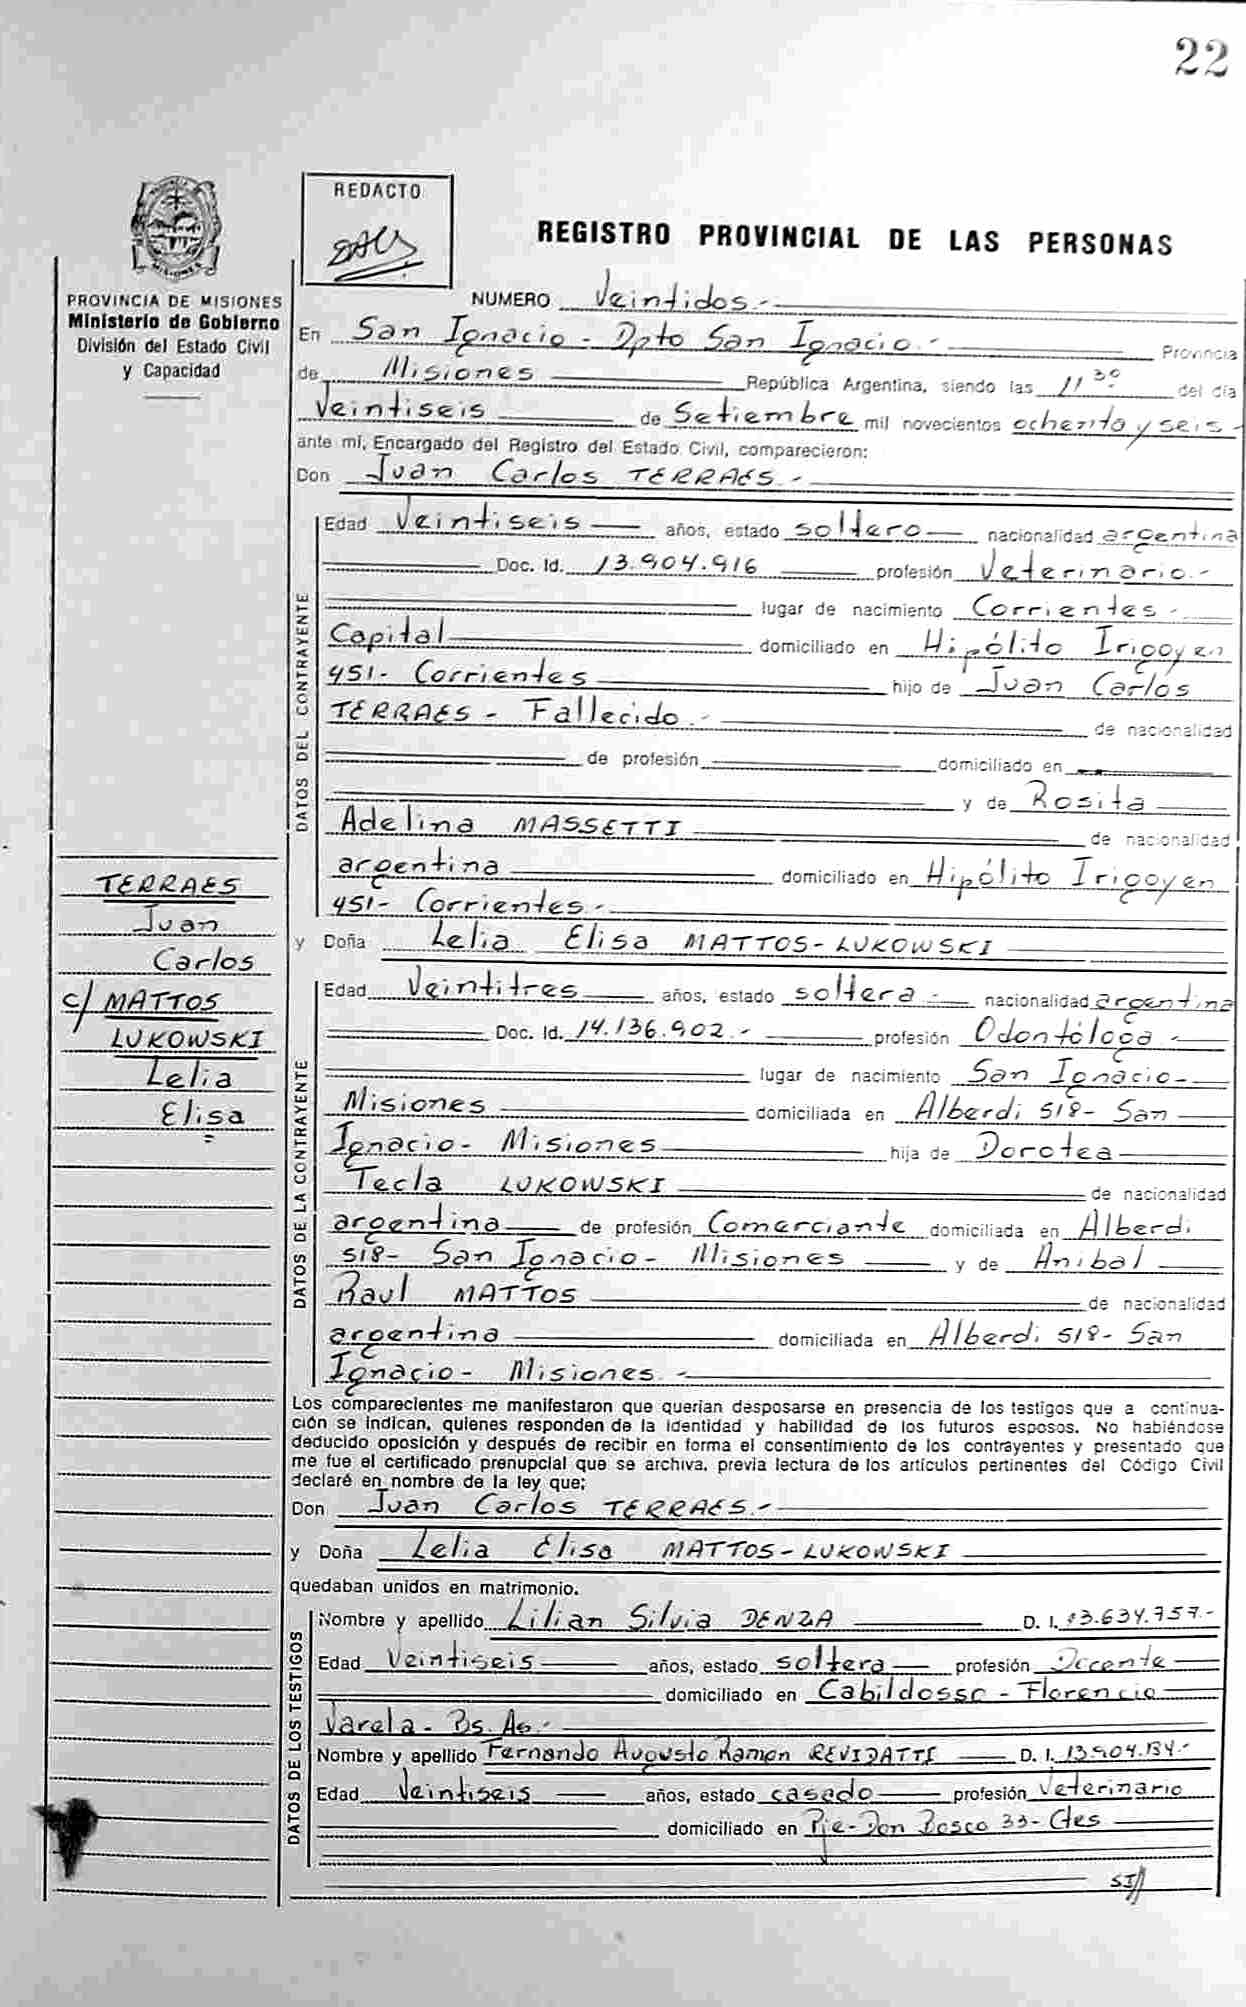 22
REDACTO
REGISTRO PROVINCIAL DE LAS PERSONAS
PROVINCIA DE MISIONES
Ministerio de Gobierno
División del Estado Civil
y Capacidad
NUMERO Veintidos.-
En San Ignacio - Dpto San Ignacio.- Provincia
de Misiones República Argentina, siendo las 11 30 del día
Veintiseis de Setiembre mil novecientos ochenta y seis-
ante mí, Encargado del Registro del Estado Civil, comparecieron:
Don Juan Carlos TERRAES.-
DATOS DEL CONTRAYENTE
Edad Veintiseis años, estado soltero nacionalidad argentina
Doc. Id. 13.904.916 profesión Veterinario.-
lugar de nacimiento Corrientes-
Capital domiciliado en Hipólito Irigoyen
451- Corrientes hijo de Juan Carlos
TERRAES - Fallecido.- de nacionalidad
de profesión domiciliado en
y de Rosita
Adelina MASSETTI de nacionalidad
argentina domiciliado en Hipólito Irigoyen
451- Corrientes.-
TERRAES
Juan
Carlos
c/ MATTOS
LUKOWSKI
Lelia
Elisa
y Doña Lelia Elisa MATTOS-LUKOWSKI
DATOS DE LA CONTRAYENTE
Edad Veintitres años, estado soltera- nacionalidad argentina
Doc. Id. 14.136.902.- profesión Odontóloga-
lugar de nacimiento San Ignacio-
Misiones domiciliada en Alberdi 518- San
Ignacio- Misiones hija de Dorotea
Tecla LUKOWSKI de nacionalidad
argentina de profesión Comerciante domiciliada en Alberdi
518- San Ignacio- Misiones y de Anibal
Raul MATTOS de nacionalidad
argentina domiciliada en Alberdi 518- San
Ignacio- Misiones.-
Los comparecientes me manifestaron que querían desposarse en presencia de los testigos que a continua-
ción se indican, quienes responden de la identidad y habilidad de los futuros esposos. No habiéndose
deducido oposición y después de recibir en forma el consentimiento de los contrayentes y presentado que
me fue el certificado prenupcial que se archiva, previa lectura de los artículos pertinentes del Código Civil
declaré en nombre de la ley que:
Don Juan Carlos TERRAES.-
y Doña Lelia Elisa MATTOS-LUKOWSKI
quedaban unidos en matrimonio.
DATOS DE LOS TESTIGOS
Nombre y apellido Lilian Silvia DENZA D. I. 13.634.757.-
Edad Veintiseis años, estado soltera profesión Docente
domiciliado en Cabildo - Florencio
Varela- Bs. As.-
Nombre y apellido Fernando Augusto Ramon REVIDATTI D. I. 13.904.134.-
Edad Veintiseis años, estado casado profesión Veterinario
domiciliado en Pje-Don Bosco 33- Ctes